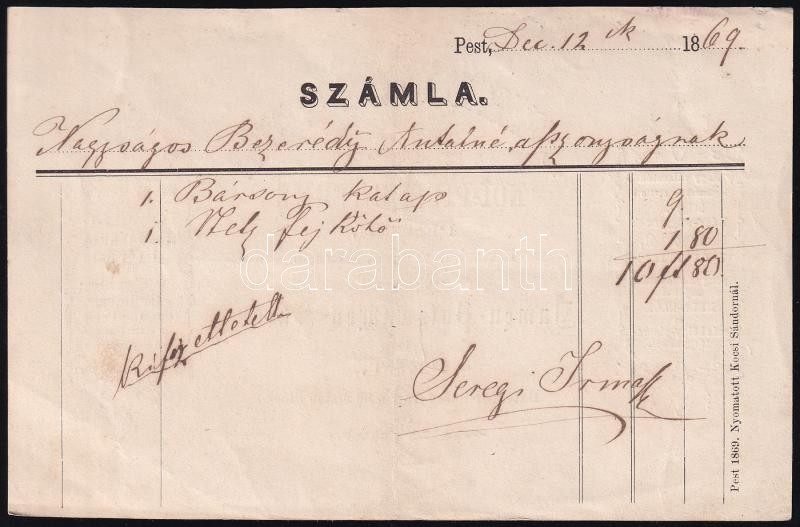 Pest, Dec. 12 ik 1869.
SZÁMLA.
Nagyságos Bezerédy Antalné aszonyságnak
1. Bársony kalap 9
1. fejkötő 1 80
10 ft 80.
Kifizettetett
Seregi Irma
Pest 1869. Nyomatott Kocsi Sándornál.
darabanth